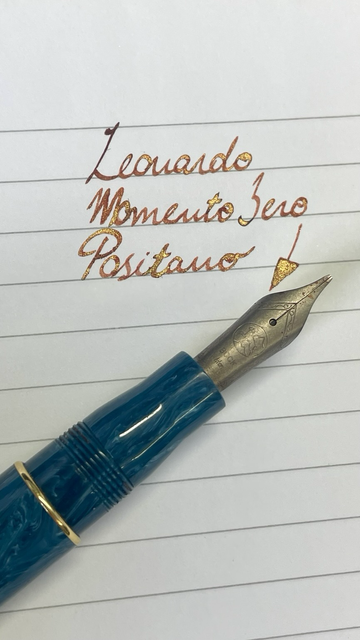 Leonardo
Momento Zero
Positano